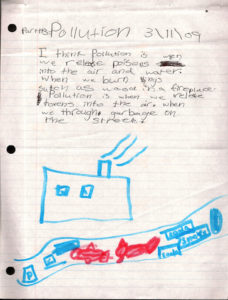 Pollution 3/11/09
I think Pollution is when
we release poisons
into the air and water.
When we burn
such as wood in a fireplace
Pollution is when we release
toxens into the air. when
we through garbage on
the street.